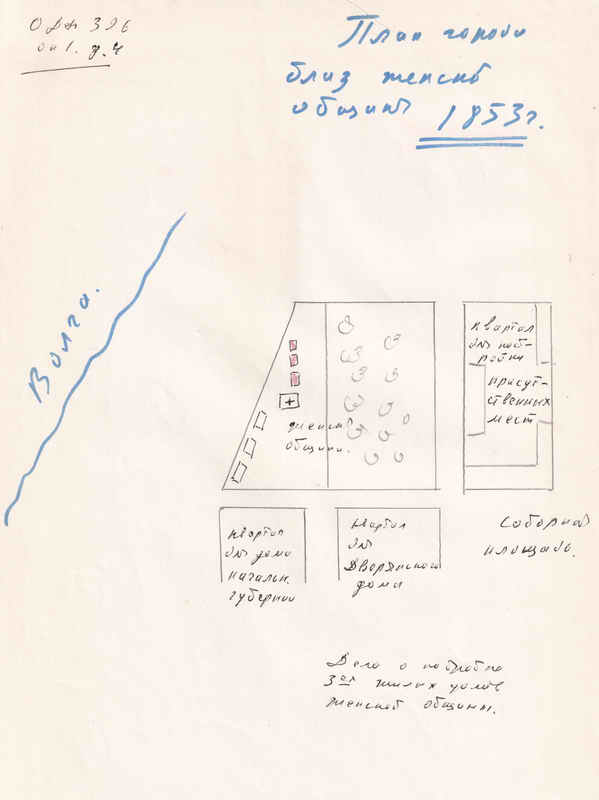 Ф 396
оп 1. д. 4
План города
близ женской
общины 1853 г.
Волга.
Квартал
для пост-
ройки
присут-
ственных
мест
женской
общины.
Квартал
для дома
начальн.
губернии
Квартал
для
Дворянского
дома
Соборная
площадь.
Дело о постройке
3ех жилых домов
женской общины.